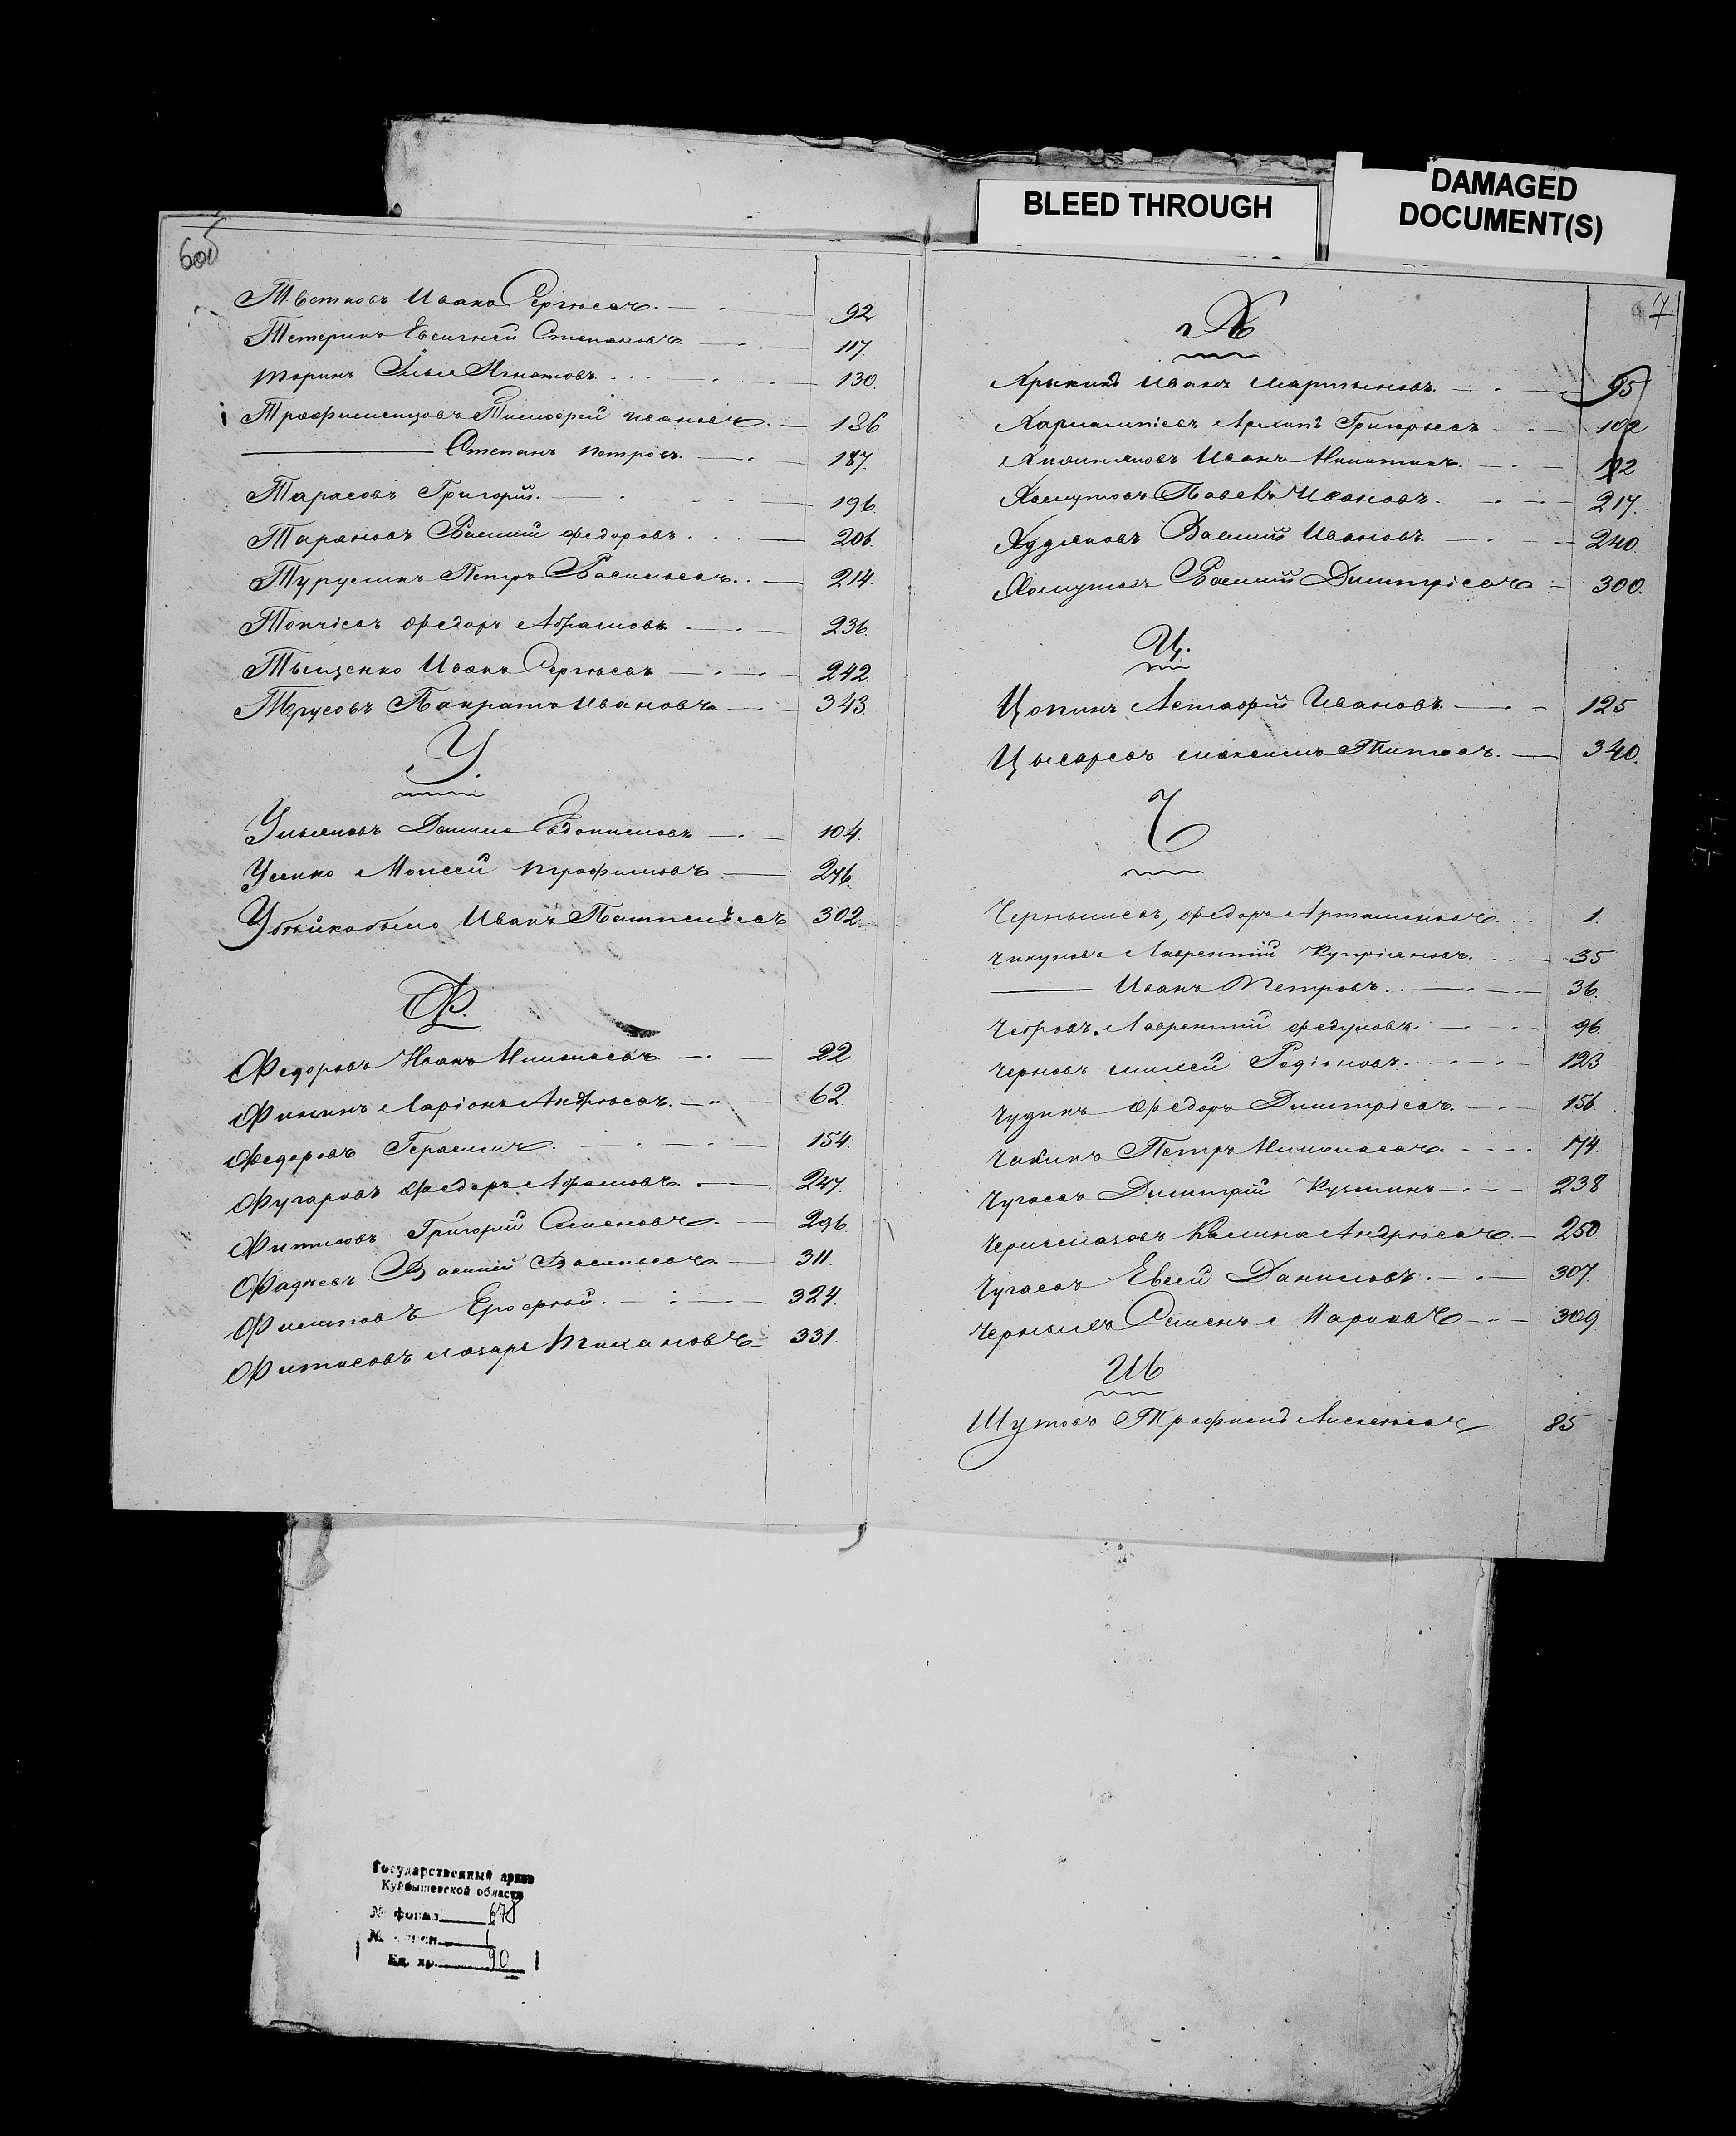 BLEED THROUGH
DAMAGED
DOCUMENT(S)
Иванъ Сергѣевъ 92
Тетеринъ Евсигней Степановъ 117
Торинъ Илья Игнатовъ 130
Трофименцовъ Тимофей Ивановъ 186
Степанъ Петровъ 187
Тарасовъ Григорій 196
Тарановъ Василій Федоровъ 206
Турусинъ Петръ Васильевъ 214
Топчіевъ Федоръ Абрамовъ 236
Тыщенко Иванъ Сергѣевъ 242
Трусовъ Панкратъ Ивановъ 343
У.
Ульяновъ Данило Евдокимовъ 104
Усенко Моисей Трофимовъ 246
Убейкобыла Иванъ Пантелѣевъ 302
Ф.
Федоровъ Иванъ Николаевъ 22
Фининъ Ларіонъ Андреевъ 62
Федоровъ Герасимъ 154
Фугаровъ Федоръ Абрамовъ 247
Фитисовъ Григорій Семеновъ 296
Фадѣевъ Василій Васильевъ 311
Филиповъ Ерофей 324
Фитисовъ Лазарь Тихановъ 331
7
Х
Иванъ Мартыновъ 95
Харлампіевъ Архипъ Григорьевъ 102
Иванъ Никитинъ 192
Хомутовъ Павелъ Ивановъ 217
Худяковъ Василій Ивановъ 240
Хомутовъ Василій Димитріевъ 300
Ц.
Цопинъ Астафій Ивановъ 125
Цысаревъ Максимъ Титовъ 340
Ч
Чернышевъ, Федоръ Артамоновъ 1
Чикуновъ Лаврентій Купріяновъ 35
Иванъ Петровъ 36
Лаврентій Федуловъ 96
Черновъ Родіоновъ 123
Чудинъ Федоръ Димитріевъ 156
Чакинъ Петръ Николаевъ 174
Чугаевъ Димитрій Кузминъ 238
Черномазовъ Калина Андреевъ 250
Чугаевъ Евсей Даниловъ 307
Семенъ Марковъ 309
Ш
Шутовъ Трофимъ Алексѣевъ 85
Государственный архив
Куйбышевской области
№ фонда 678
№ описи 1
Ед. хр. 90